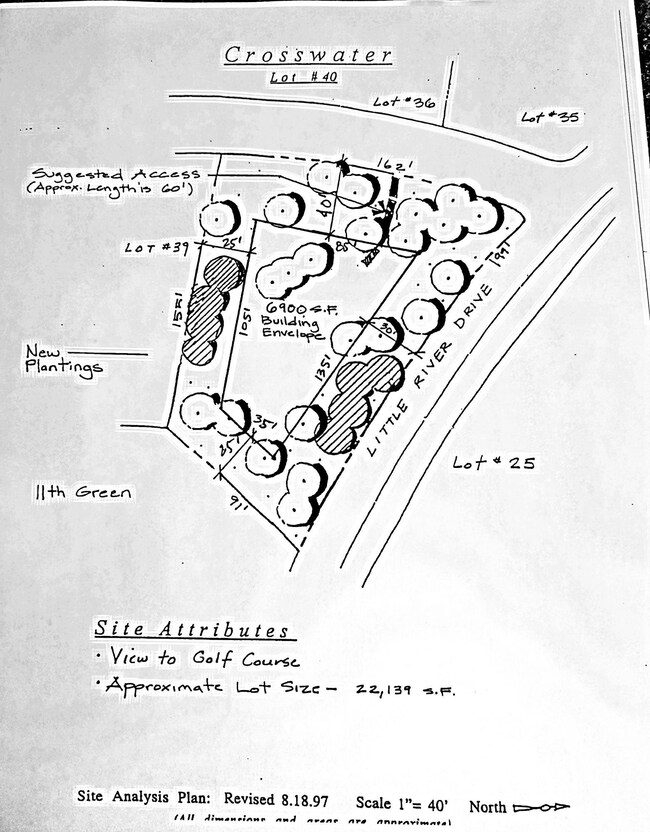 Crosswater
Lot #40
Lot #36
Lot #35
Suggested Access
(Approx. Length is 60')
162'
40'
85'
Lot #39
25'
199'
155'
105'
6900 S.F.
Building
Envelope
30'
135'
New
Plantings
LITTLE RIVER DRIVE
35'
25'
Lot #25
11th Green
91'
Site Attributes
· View to Golf Course
· Approximate Lot Size - 22,139 S.F.
Site Analysis Plan: Revised 8.18.97 Scale 1"= 40' North
(All dimensions and areas are approximate)